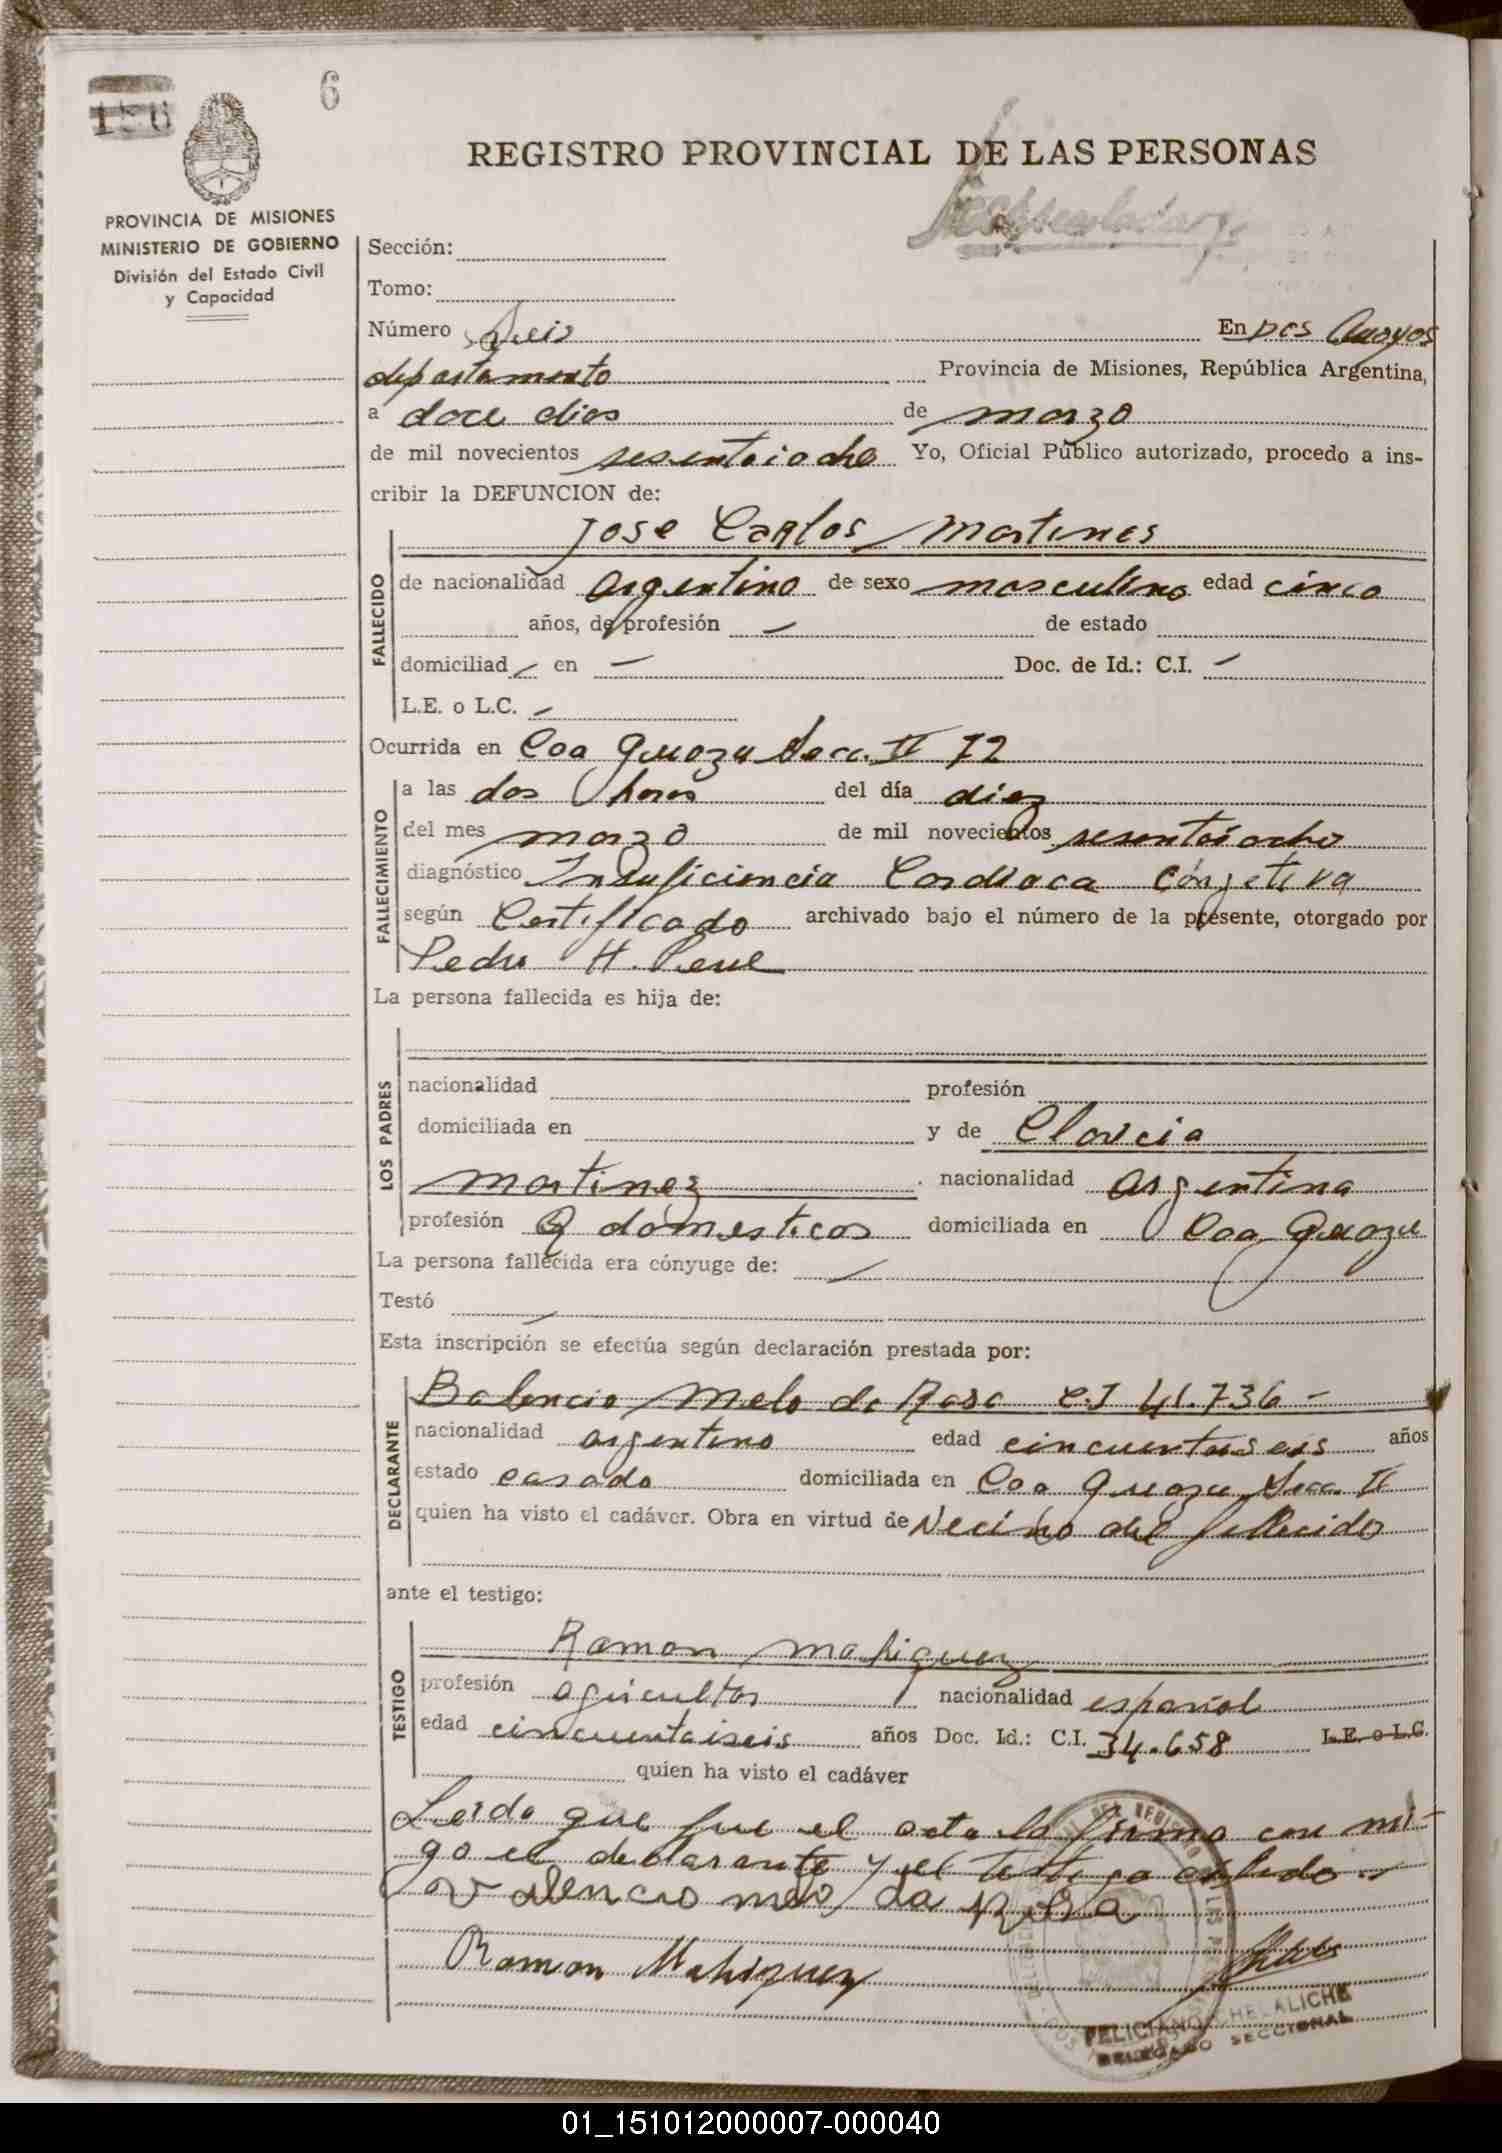 6
REGISTRO PROVINCIAL DE LAS PERSONAS
PROVINCIA DE MISIONES
MINISTERIO DE GOBIERNO
División del Estado Civil
y Capacidad
Sección:
Tomo:
Número Seis En Dos Arroyos
departamento Provincia de Misiones, República Argentina,
a doce dias de marzo
de mil novecientos sesentaiocho Yo, Oficial Público autorizado, procedo a ins-
cribir la DEFUNCION de:
Jose Carlos Martines
FALLECIDO
de nacionalidad argentino de sexo masculino edad cinco
años, de profesión — de estado
domiciliad — en — Doc. de Id.: C.I. —
L.E. o L.C. —
Ocurrida en Caa Guazu Secc. II 72
FALLECIMIENTO
a las dos horas del día diez
del mes marzo de mil novecientos sesentaiocho
diagnóstico Insuficiencia Cardiaca Congetiva
según Certificado archivado bajo el número de la presente, otorgado por
Pedro H.
La persona fallecida es hija de:
LOS PADRES
nacionalidad profesión
domiciliada en y de Claricia
Martinez nacionalidad argentina
profesión Q domesticos domiciliada en Caa Guazu
La persona fallecida era cónyuge de: —
Testó —
Esta inscripción se efectúa según declaración prestada por:
DECLARANTE
Balencio Melo da Rosa C.I 41.736 –
nacionalidad argentino edad cincuentaseis años
estado casado domiciliada en Caa Guazu Secc. II
quien ha visto el cadáver. Obra en virtud de Vecino del fallecido
ante el testigo:
TESTIGO
Ramon Mahiquez
profesión agricultor nacionalidad español
edad cincuentaiseis años Doc. Id.: C.I. 34.658 L.E. o L.C.
quien ha visto el cadáver
Leida que fue el acta la firma con mi-
go el declarante y el testigo citado.
Valencio melo da Rosa
Ramon Mahiquez
FELICIANO CHELALICHE
DELEGADO SECCIONAL
01_151012000007-000040